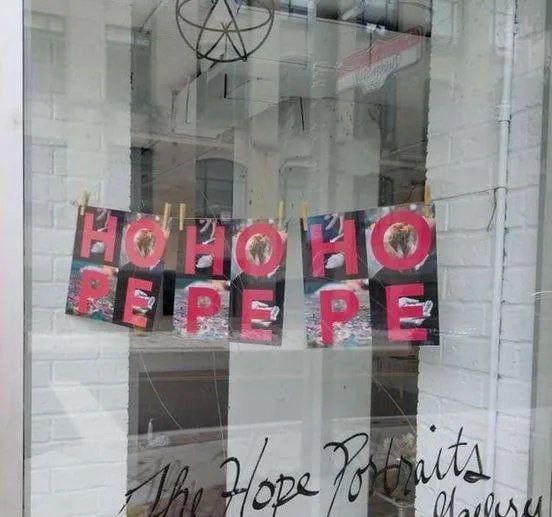 HO HO HO
PE PE PE
The Hope Portraits
Gallery